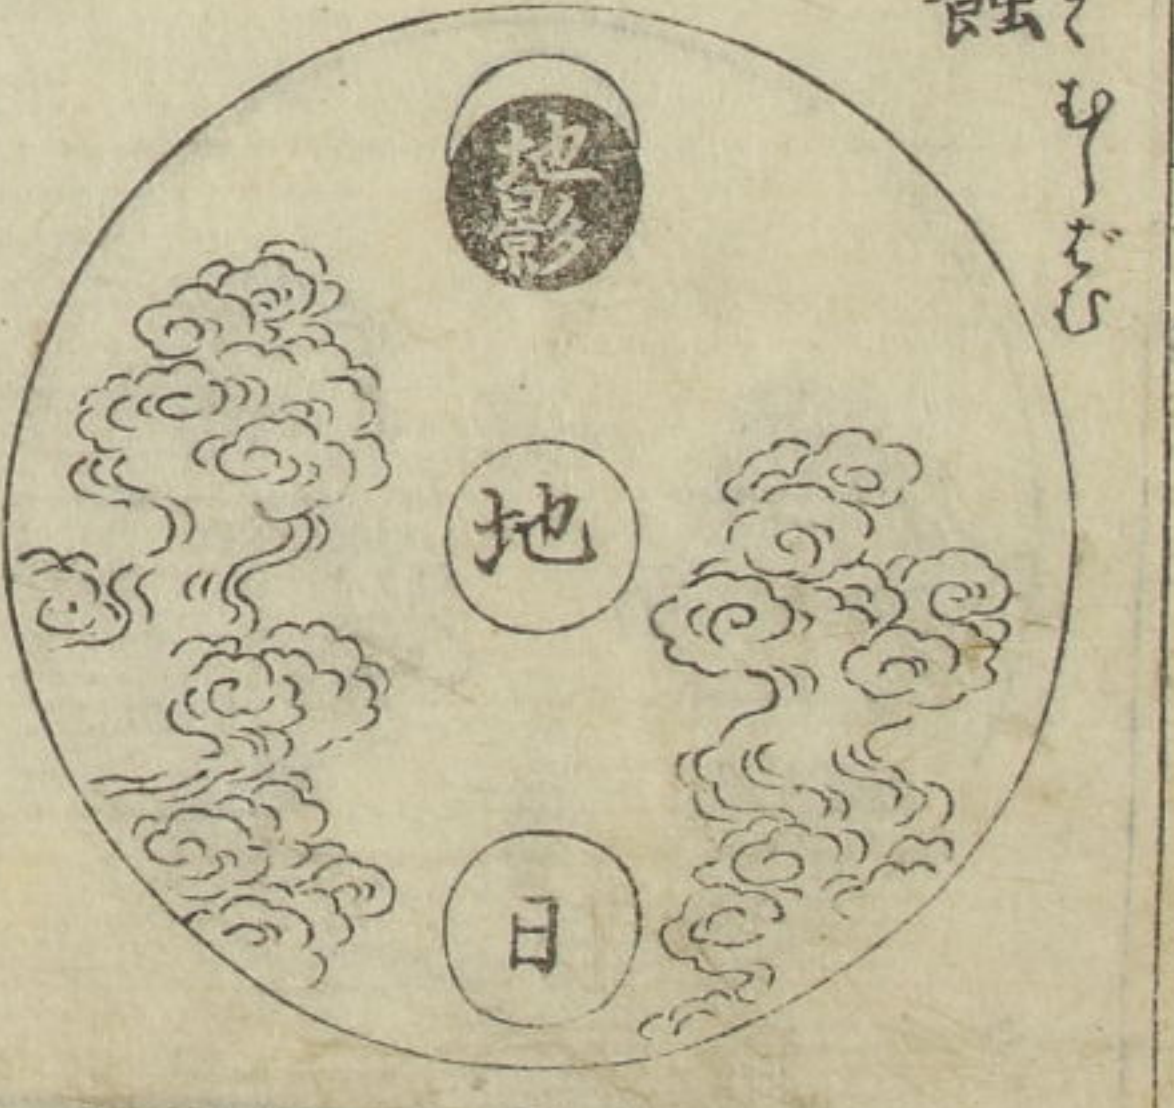 蝕
むしばむ
地影
地
日